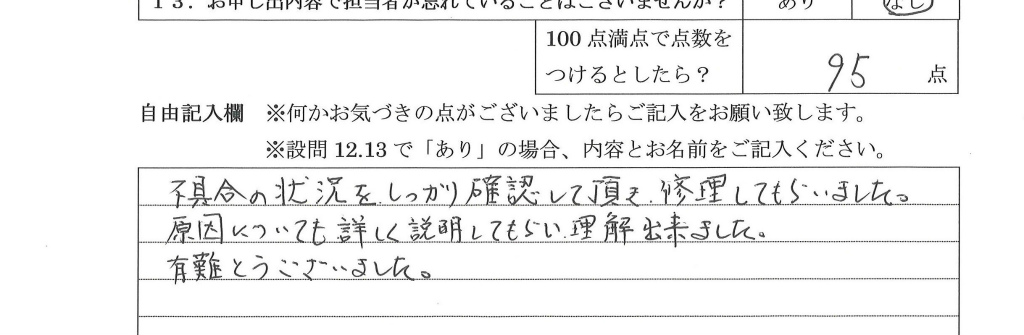 １３．お申し出内容で担当者が忘れていることはございませんか？ あり なし
100 点満点で点数を
つけるとしたら？ 95 点
自由記入欄 ※何かお気づきの点がございましたらご記入をお願い致します。
※設問 12.13 で「あり」の場合、内容とお名前をご記入ください。
不具合の状況をしっかり確認して頂き、修理してもらいました。
原因についても詳しく説明してもらい、理解出来ました。
有難とうございました。